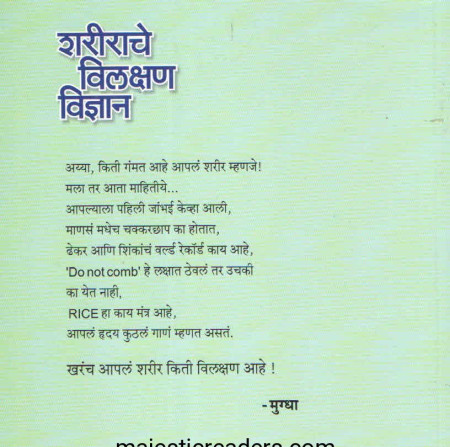 शरीराचे
विलक्षण
विज्ञान
अय्या, किती गंमत आहे आपलं शरीर म्हणजे!
मला तर आता माहितीये...
आपल्याला पहिली जांभई केव्हा आली,
माणसं मधेच चक्करछाप का होतात,
ढेकर आणि शिंकांचं वर्ल्ड रेकॉर्ड काय आहे,
'Do not comb' हे लक्षात ठेवलं तर उचकी
का येत नाही,
RICE हा काय मंत्र आहे,
आपलं हृदय कुठलं गाणं म्हणत असतं.
खरंच आपलं शरीर किती विलक्षण आहे !
- मुग्धा
majesticreaders.com